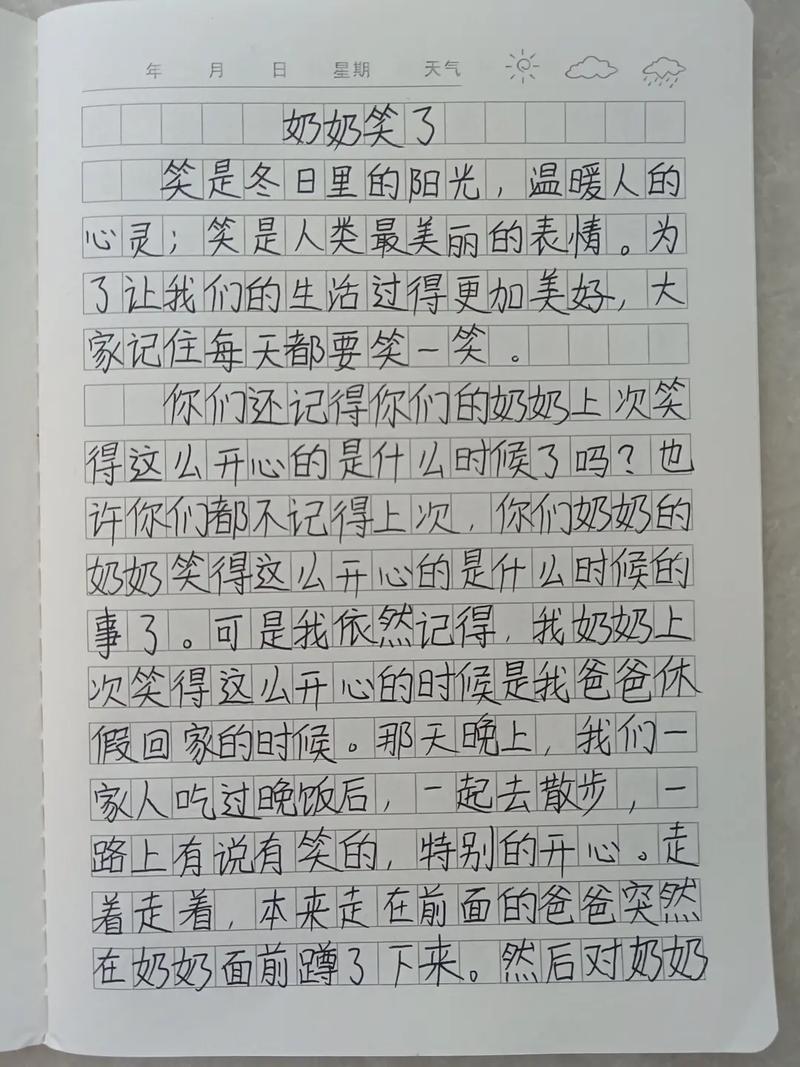 年 月 日 星期 天气
奶奶笑了
笑是冬日里的阳光，温暖人的
心灵；笑是人类最美丽的表情。为
了让我们的生活过得更加美好，大
家记住每天都要笑一笑。
你们还记得你们的奶奶上次笑
得这么开心的是什么时候了吗？也
许你们都不记得上次，你们奶奶的
奶奶笑得这么开心的是什么时候的
事了。可是我依然记得，我奶奶上
次笑得这么开心的时候是我爸爸休
假回家的时候。那天晚上，我们一
家人吃过晚饭后，一起去散步，一
路上有说有笑的，特别的开心。走
着走着，本来走在前面的爸爸突然
在奶奶面前蹲了下来。然后对奶奶